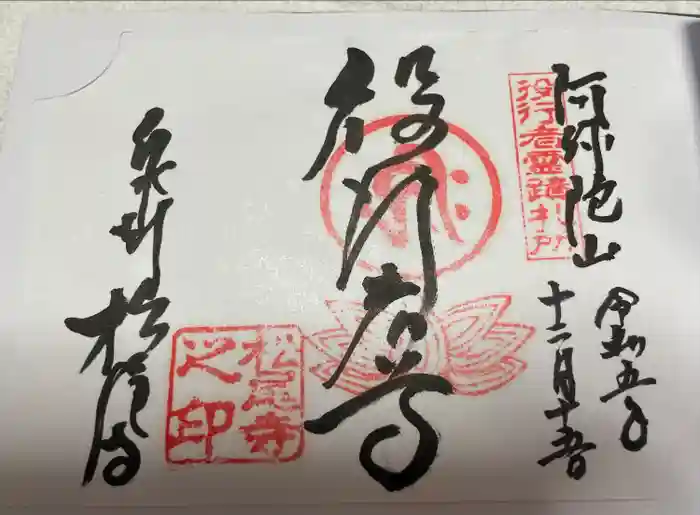 阿弥陀山
役行者霊蹟札所
令和五年
十二月十五日
役行者尊
泉州 松尾寺
松尾寺之印